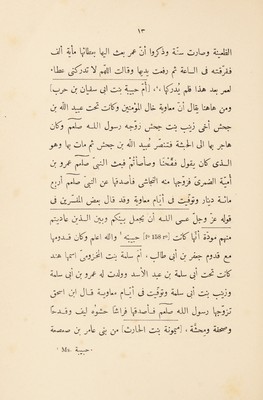 ١٣
الظعينة وصارت سنّة وذكروا أنّ عمر بعث اليها بعطائها مأية ألف
ففرّقته فى الساعة ثم رفعت يديها وقالت اللهّم لا تدركنى عطاء
لعمر بعد هذا فلم يُدركها ٬، [أمّ حبيبة بنت ابى سفيان بن حرب]
ومن هاهنا يقال أنّ معاوية خال المؤمنين وكانت تحت عبيد اللّه بن
جحش أخى زينب بنت جحش زوّجه رسول اللّه صلعم وكان
هاجر بها الى الحبشة فتنصّر عبيد اللّه بن جحش ثم مات بها وهو
الذى كان يقول فقّحنا وصأصأتم فبعث النبىّ صلعم عمرو بن
أميّة الضمرىّ فزوّجها منه النجاشى فأصدقها عن النبىّ صلعم أربع
مائة دينار وتوفّيت فى أيّام معاوية وقد قال بعض المفسّرين فى
قوله عزّ وجلّ عسى اللّه أن يجعل بينكم وبين الذين عاديتم
منهم مودّة أنّها كانت [F° 158 r°] حبيبته ¹ واللّه اعلم وكان قدومها
مع قدوم جعفر بن أبى طالب٬ أمّ سلمة بنت المخزومىّ اسمها هند
كانت تحت أبى سلمة بن عبد الأسد وولدت له عمرو بن أبى سلمة
وزينب بنت أبى سلمة وتوفّيت فى أيّام معاوية قال ابن اسحق
تزوّجها رسول اللّه صلعم فأصدقها فراشًا حشوُه ليف وقدحًا
وصحفة ومحشّة٬ [ميمونة بنت الحارث] من بنى عامر بن صعصعة
¹ Ms. حبيبة.